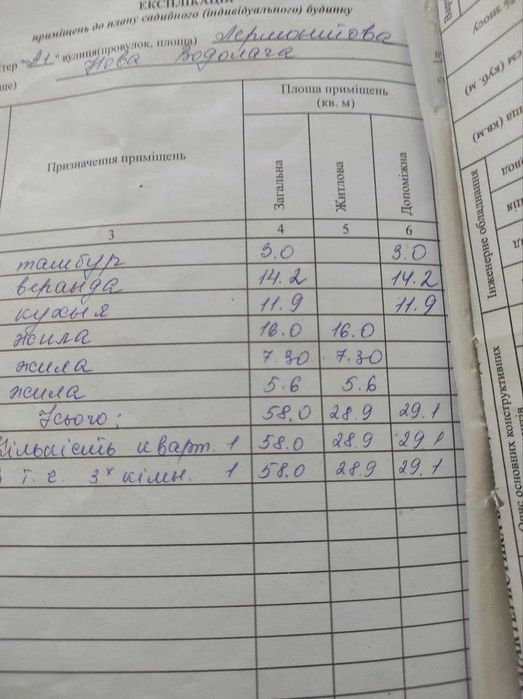 ЕКСПЛІКАЦІЯ
приміщень до плану садибного (індивідуального) будинку
літер "А1" вулиця(провулок, площа) Лермонтова
Нова Водолага
Площа приміщень
(кв. м)
Призначення приміщень
Загальна
Житлова
Допоміжна
3 4 5 6
тамбур 3.0 3.0
веранда 14.2 14.2
кухня 11.9 11.9
жила 16.0 16.0
жила 7.30 7.30
жила 5.6 5.6
Усього: 58.0 28.9 29.1
Кількість кварт. 1 58.0 28.9 29.1
т. г. 3х кімн. 1 58.0 28.9 29.1
(куб. м)
(кв.м)
Інженерне обладнання
Опис основних конструктивних